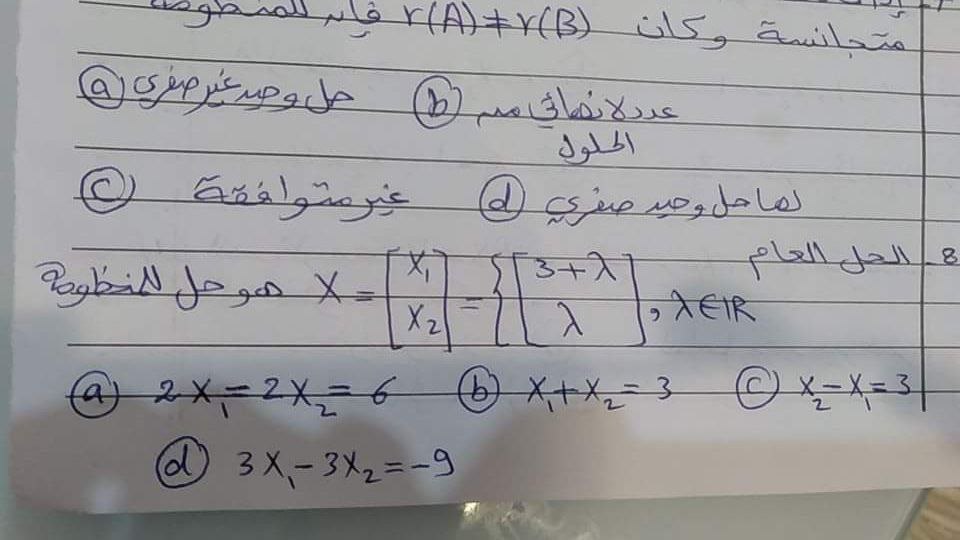 متجانسة وكان r(A)≠r(B) فإن للمنظومة
ⓐ حل وحيد غير صفري ⓑ عدد لا نهائي من
الحلول
ⓒ غير متوافقة ⓓ لها حل وحيد صفري
8- الحل العام
X = [x₁ x₂] = {[3+λ λ], λ∈ℝ هو حل للمنظومة
ⓐ 2x₁=2x₂=6 ⓑ x₁+x₂=3 ⓒ x₂-x₁=3
ⓓ 3x₁-3x₂=-9